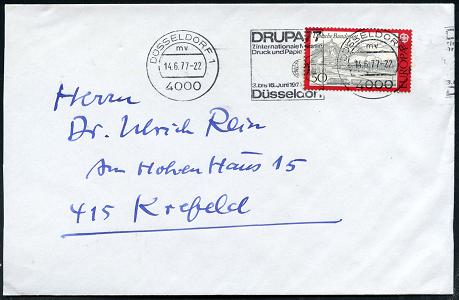 DÜSSELDORF 1
mv
14.6.77-22
4000
DRUPA 77
7. internationale Messe
Druck und Papier
3. bis 16. Juni 1977
Düsseldorf
Deutsche Bundespost
50
EUROPA
DÜSSELDORF 1
mv
14.6.77-22
4000
Herrn
Dr. Ulrich Rein
Am Hohen Haus 15
415 Krefeld